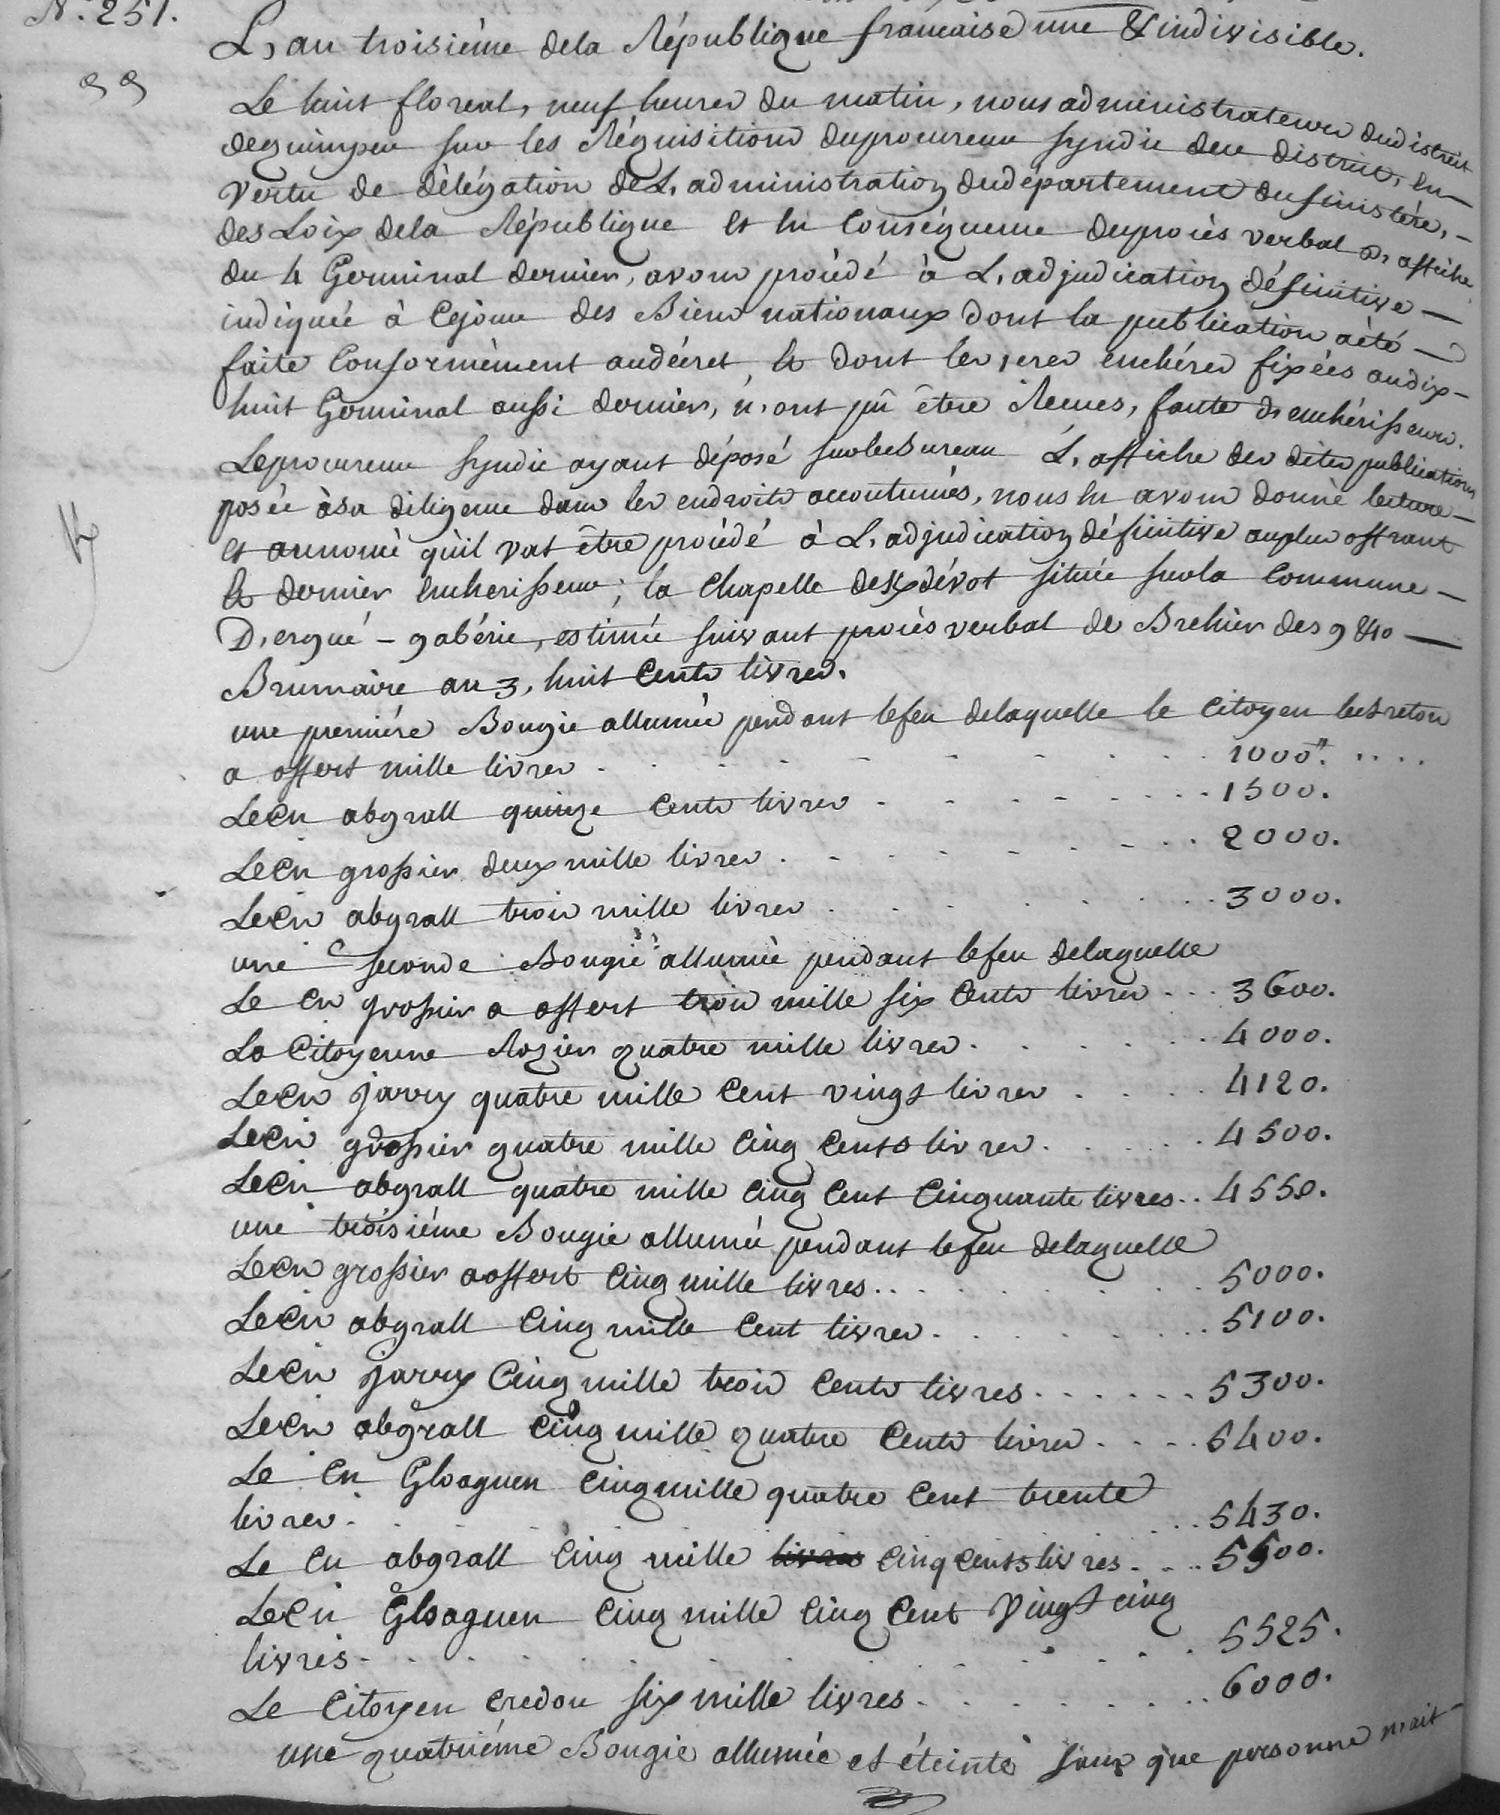 N.° 251.
L, an troisiéme dela République française une & indivisible.
Le huit floreal, neuf heures du matin, nous administrateurs dudistrict
dequimper sur les Réquisitions duprocureur syndic dece district, en
vertu de dèlégation deL, administration dudepartement dufinistére, —
des Loix dela République et en Conséquence duprocès verbal D, affiche
du 4 Germinal dernier, avons procédé à L, adjudication définitive —
indiquée à Cejour des Biens nationaux dont la publication aété —
faite Conformément audécret, & dont les 1eres enchéres fixées audix-
huit Germinal aussi dernier, n, ont pû être Recues, faute D, enchérisseurs.
Leprocureur syndic ayant déposé surleBureau L, affiche des dites publications
posée àsa diligence dans les endroits accoutumés, nous en avons donné lecture —
et annoncé qu'il vat être procédé à L, adjudication définitive auplus offrant
& dernier encherisseur; la Chapelle deKdévot située surla Commune —
D, ergué - gabérie, estimée suivant procès verbal de Brehier des 9 & 10 —
Brumaire an 3, huit Cents livres.
une premiére Bougie allumée pendant lefeu delaquelle le Citoyen leBreton
a offert mille livres . . . . 1000". . . . .
LeCn abgrall quinze Cents livres . . . . 1500.
LeCn grossier deux mille livres . . . . 2000.
LeCn abgrall trois mille livres . . . . 3000.
une seconde Bougie allumée pendant lefeu delaquelle
Le Cn grossier a offert trois mille six Cents livres . . . 3600.
La Citoyenne Rozier quatre mille livres . . . . 4000.
LeCn jarry quatre mille Cent vingt livres . . . . 4120.
LeCn grossier quatre mille Cinq Cents livres . . . . 4500.
LeCn abgrall quatre mille Cinq Cent Cinquante livres . . 4550.
une troisiéme Bougie allumée pendant lefeu delaquelle
LeCn grossier aoffert Cinq mille livres . . . . 5000.
LeCn abgrall Cinq mille Cent livres . . . . 5100.
LeCn jarry Cinq mille trois Cents livres . . . . 5300.
LeCn abgrall Cinq mille quatre Cents livres . . . . 5400.
Le Cn Gloaguen Cinq mille quatre Cent trente
livres . . . . 5430.
Le Cn abgrall Cinq mille livres cinq cents livres . . . . 5500.
LeCn Gloaguen Cinq mille Cinq Cent Vingt cinq
livres . . . . 5525.
Le Citoyen Credou six mille livres . . . . 6000.
une quatriéme Bougie allumée et éteinte sans que personne n'ait —